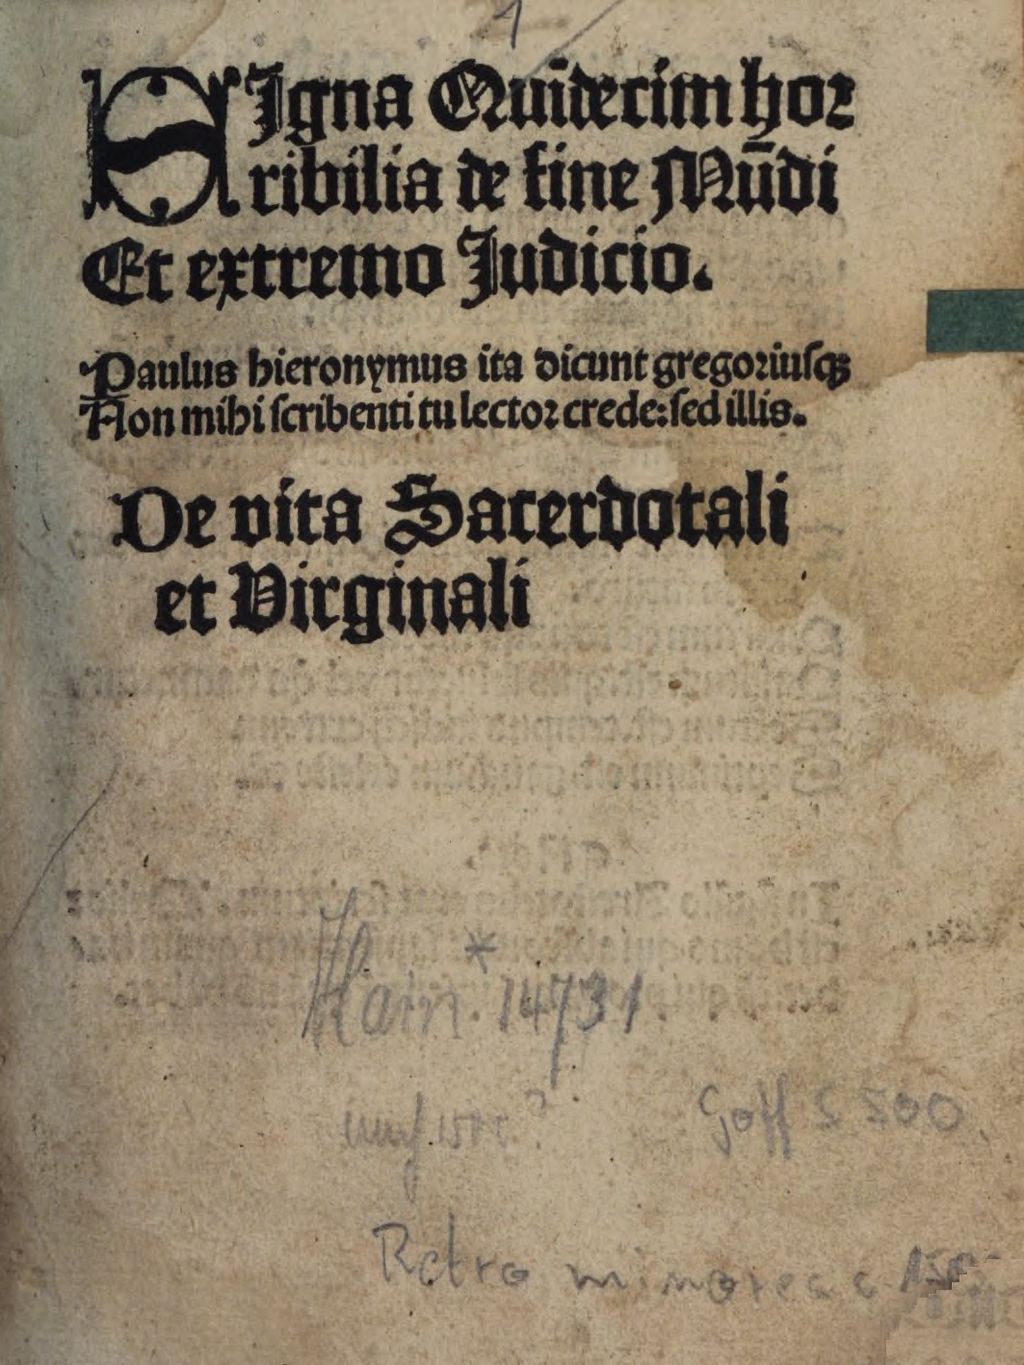 1
SIgna Quīdecim hor
ribilia de fine Mūdi
Et extremo Judicio.
Paulus hieronymus ita dicunt gregoriusqꝫ
Non mihi scribenti tu lector crede: sed illis.
De vita Sacerdotali
et Virginali
Hain * 14731
Goff S 500.
Retro minores